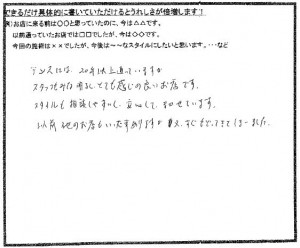 できるだけ具体的に書いていただけるとうれしさが倍増します！
例）お店に来る前は〇〇と思っていたのに、今は△△です。
以前通っていたお店では□□でしたが、今は◇◇です。
今回の施術は××でしたが、今後は～～なスタイルにしたいと思います。…など
20年以上通っていますが
スタッフの方も とても感じの良いお店です。
スタイルも相談しやすいし、安心して、まかせています。
以前 他のお店も すぐもどってきてしまいました。